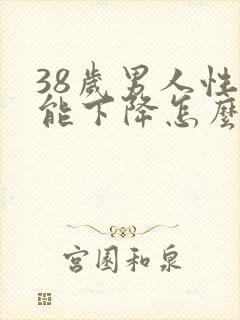 38歲男人性
能下降怎麼
宮園和泉